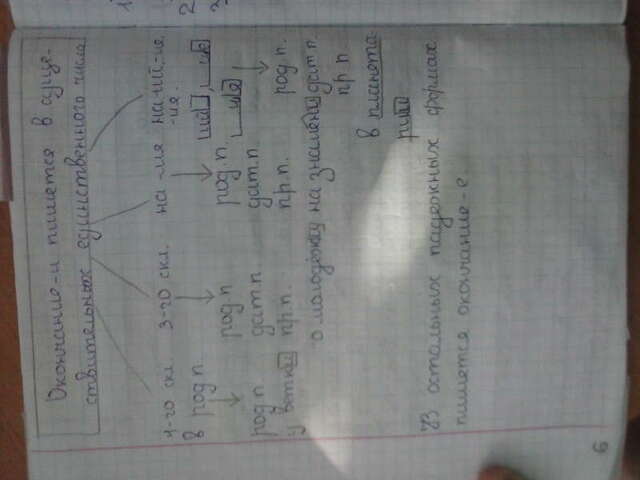 Окончание -и пишется в суще-
ствительных единственного числа
1-го скл. 3-го скл. на -мя на -ий -ие
-ия.
в род п.
род п род п род п. род. п.
у ветки дат п. дат п. дат п.
пр. п. пр. п. пр п
о молодёжи на знамени в планета-
рии
В остальных падежных формах
пишется окончание -е
6